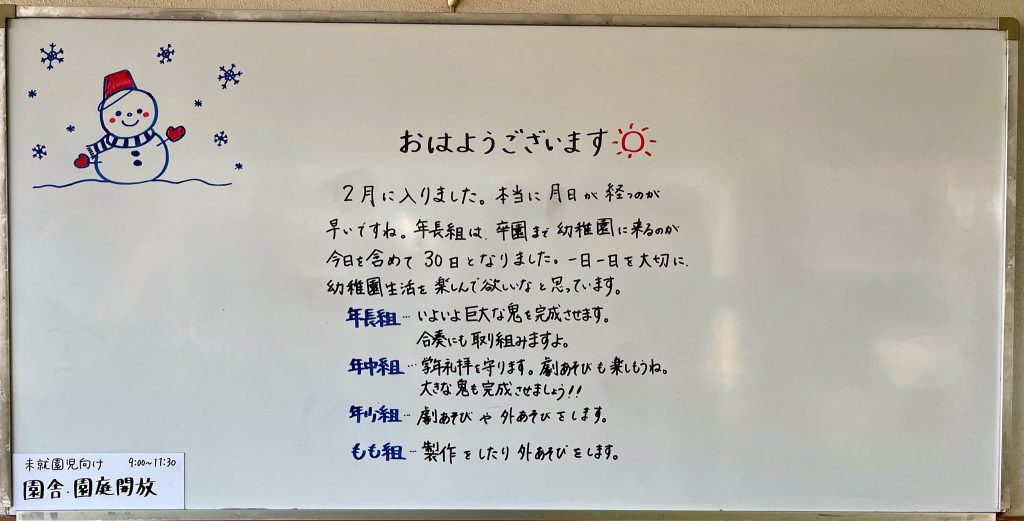 おはようございます
2月に入りました。本当に月日が経つのが
早いですね。年長組は、卒園まで幼稚園に来るのが
今日を含めて30日となりました。一日一日を大切に、
幼稚園生活を楽しんで欲しいなと思っています。
年長組…いよいよ巨大な鬼を完成させます。
合奏にも取り組みますよ。
年中組…学年礼拝を守ります。劇あそびも楽しもうね。
大きな鬼も完成させましょう!!
年少組…劇あそびや外あそびをします。
もも組…製作をしたり外あそびをします。
未就園児向け 9:00~11:30
園舎・園庭開放